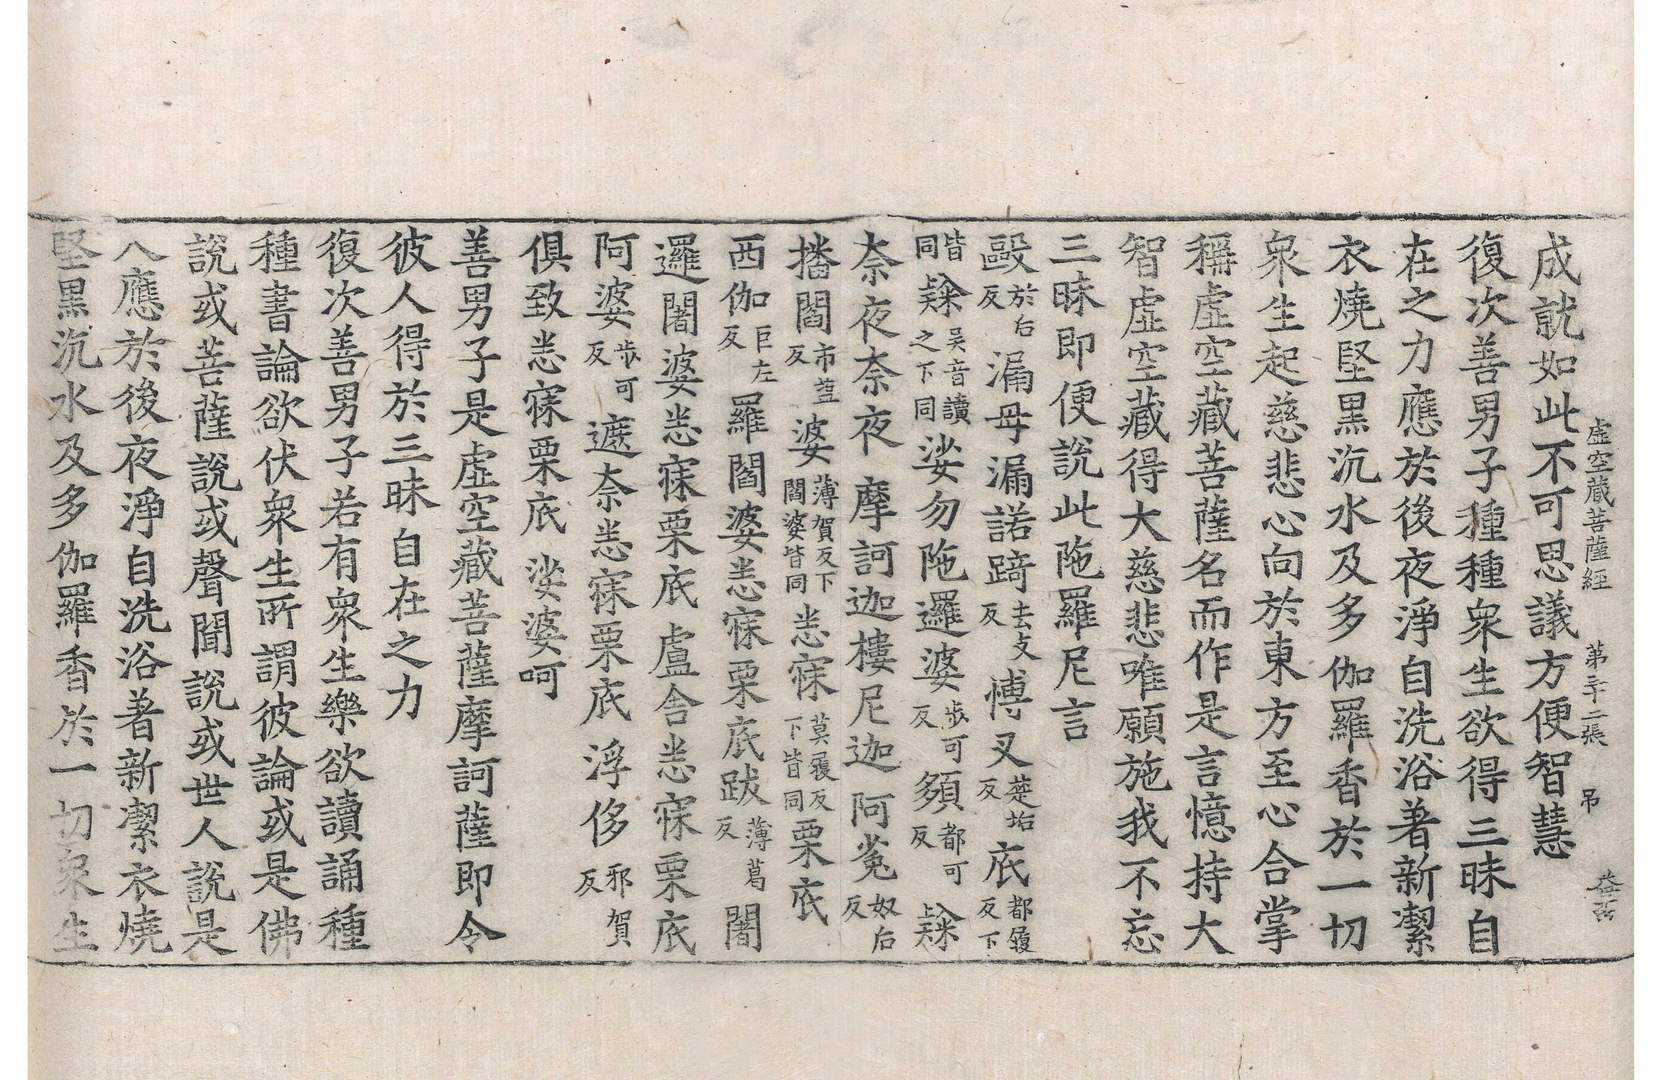 虛空藏菩薩經 第二張 吊
成就如此不可思議方便智慧
復次善男子種種衆生欲得三昧自
在之力應於後夜淨自洗浴著新潔
衣燒堅黑沉水及多伽羅香於一切
衆生起慈悲心向於東方至心合掌
稱虛空藏菩薩名而作是言憶持大
智虛空藏得大慈悲唯願施我不忘
三昧即便說此陁羅尼言
毆於后反漏母漏諾踦去攴反慱叉楚垢反底都履反下
皆同吳音讀之下同娑勿陁邏婆步可反都可反
奈夜奈夜摩訶迦樓尼迦阿㝹奴后反
播閻市葢反婆薄賀反下閻婆皆同恙寐莫履反下皆同栗底
西伽巨左反羅閻婆恙寐栗底跋薄葛反闍
邏闍婆恙寐栗底盧舍恙寐栗底
阿婆步可反遮奈恙寐栗底浮侈邪賀反
俱致恙寐栗底娑婆呵
善男子是虛空藏菩薩摩訶薩即令
彼人得於三昧自在之力
復次善男子若有衆生樂欲讀誦種
種書論欲伏衆生所謂彼論或是佛
說或菩薩說或聲聞說或世人說是
人應於後夜淨自洗浴著新潔衣燒
堅黑沉水及多伽羅香於一切衆生